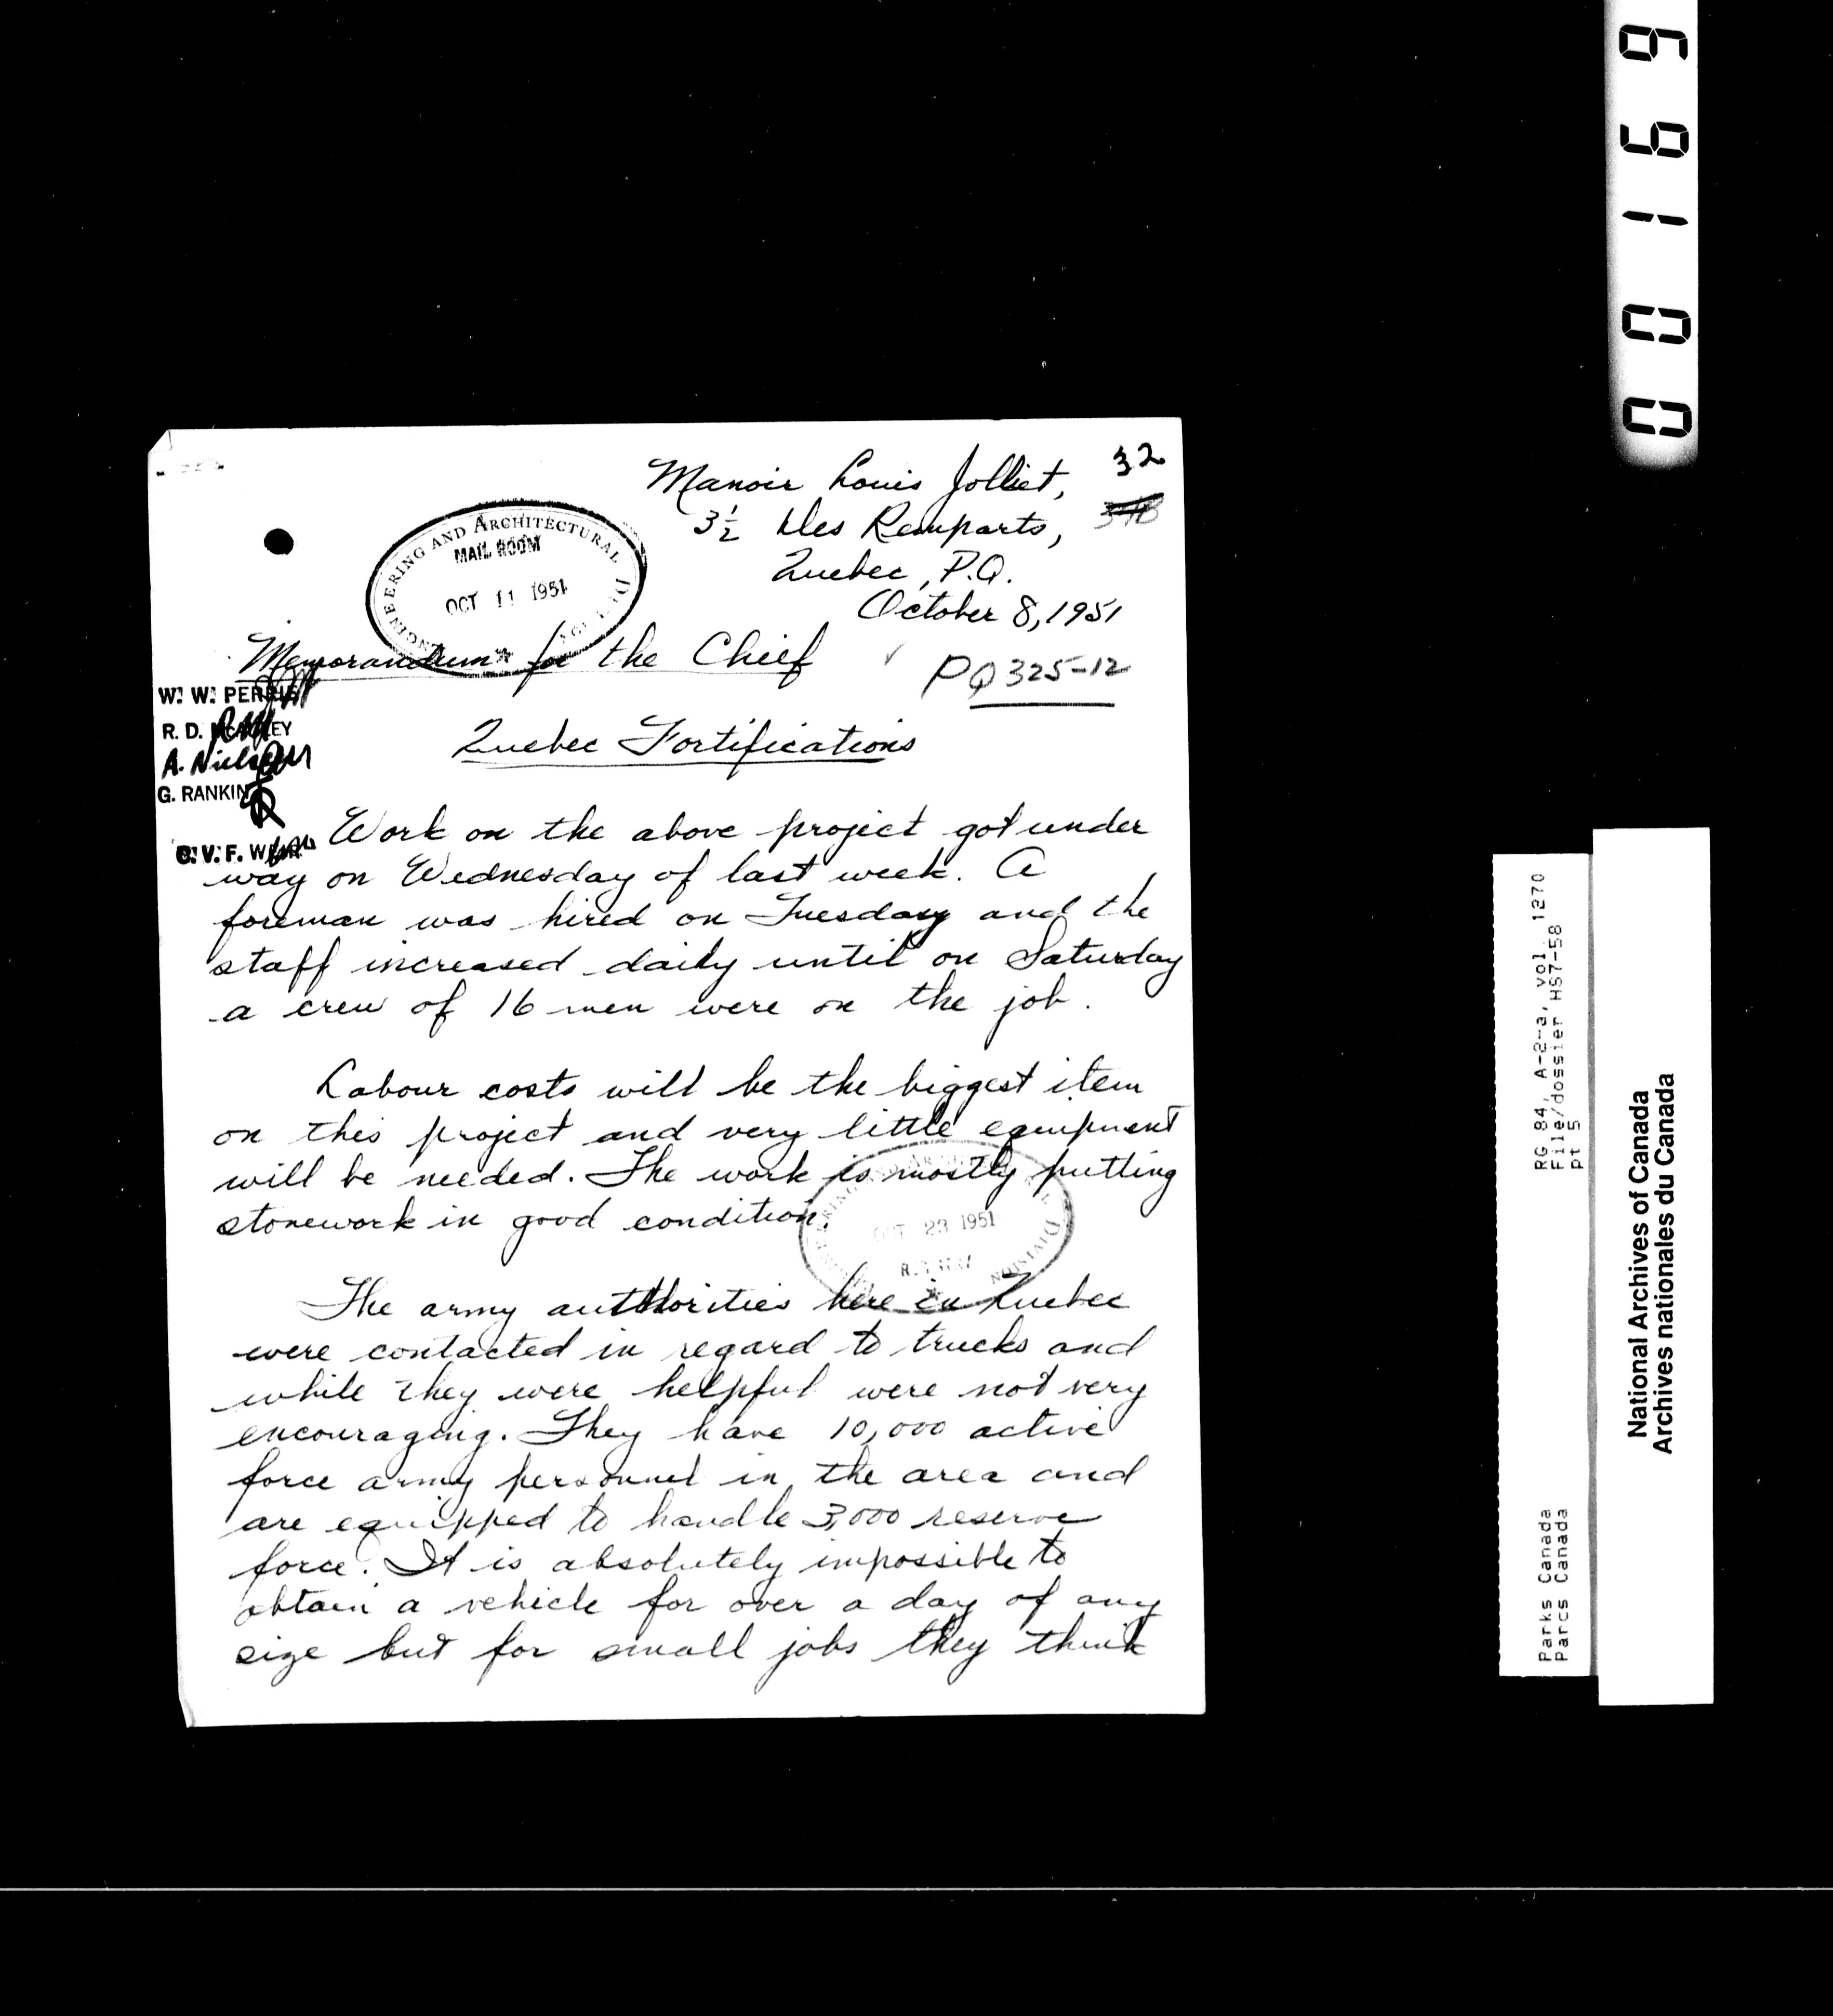 00169
Manoir Louis Jolliet,
32
3½ Des Remparts,
Quebec, P.Q.
October 8, 1951
ENGINEERING AND ARCHITECTURAL DIVISION
MAIL ROOM
OCT 11 1951
Memorandum for the Chief
PQ 325-12
W. W. PERRIS
R. D.
A. Nielsen
G. RANKIN
Quebec Fortifications
Work on the above project got under
way on Wednesday of last week. A
foreman was hired on Tuesday and the
staff increased daily until on Saturday
a crew of 16 men were on the job.
Labour costs will be the biggest item
on this project and very little equipment
will be needed. The work is mostly putting
stonework in good condition.
OCT 23 1951
DIVISION
The army authorities here in Quebec
were contacted in regard to trucks and
while they were helpful were not very
encouraging. They have 10,000 active
force army personnel in the area and
are equipped to handle 3,000 reserve
force. It is absolutely impossible to
obtain a vehicle for over a day of any
size but for small jobs they think
RG 84, A-2-a, vol. 1270
File/dossier HS7-58
pt 5
Parks Canada
Parcs Canada
National Archives of Canada
Archives nationales du Canada